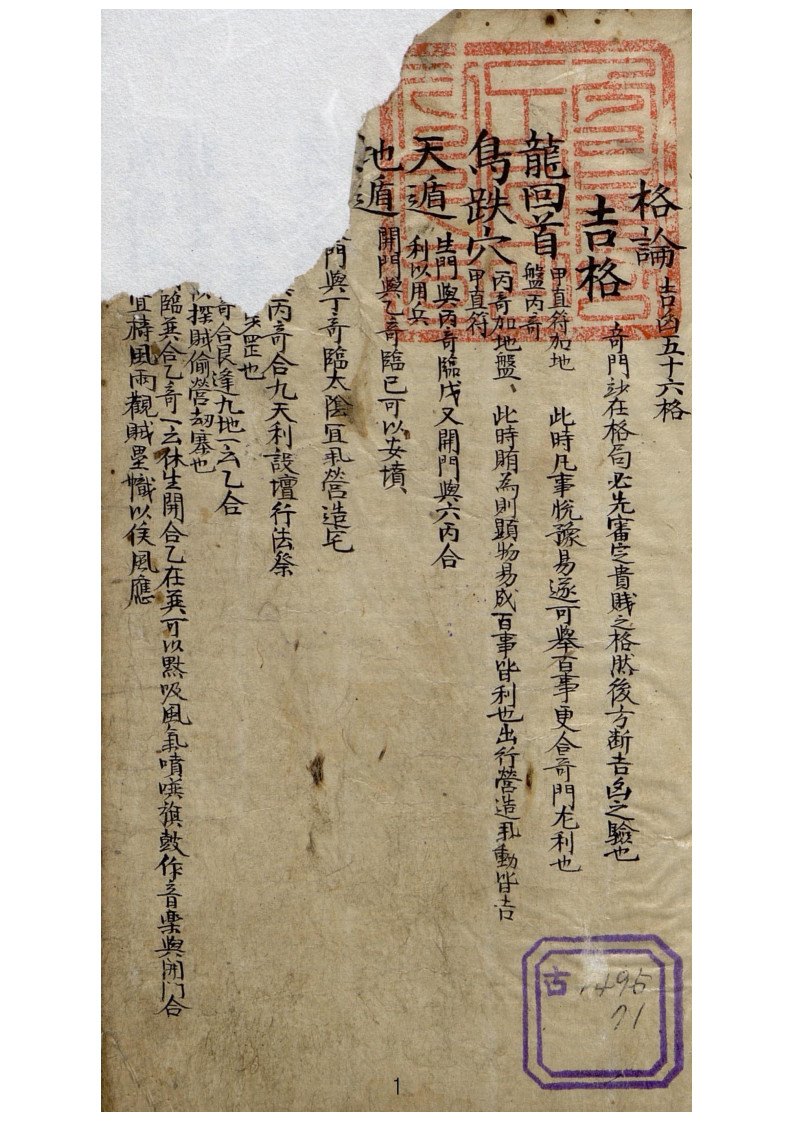 格論 吉凶五十六格
吉格 奇門玅在格局必先審定貴賤之格然後方断吉凶之驗也
龍回首 甲直符加地
盤丙奇 此時凡事悅豫易遂可舉百事更合奇門尤利也
鳥跌穴 丙奇加地盤、
甲直符 此時所為則顯物易成百事皆利也出行營造乳動皆吉
天遁 生門與丙奇臨戊又開門與六丙合
利以用兵
地遁 開門與乙奇臨已可以安墳、
門與丁奇臨太陰宜乳營造宅
丙奇合九天利設壇行法祭
天罡也
奇合艮逢九地一云乙合
以探賊偷營刼寨也
臨巽合乙奇一云休生開合乙在巽可以黙吸風氣噴噀旗鼓作音樂與開門合
宜禱風雨觀賊壘幟以俟風應
古 495
71
1